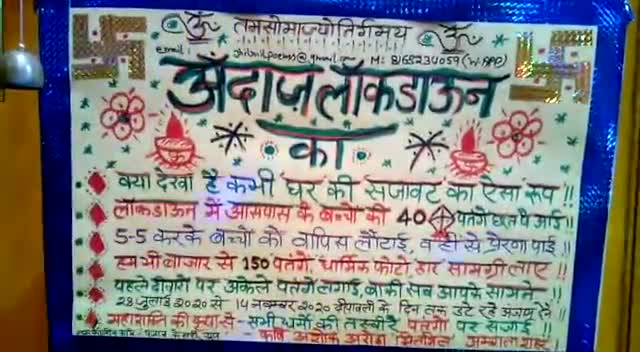 ॐ तमसोमाज्योतिर्गमय ॐ
email: @gmail.com M: 8168234059 (W.APP)
अंदाज लॉकडाऊन
का
क्या देखा है कभी घर की सजावट का ऐसा रूप !!
लॉकडाऊन में आसपास के बच्चों की 40 पतंगें छत पे आई !!
5-5 करके बच्चों को वापिस लौटाई, वहीं से प्रेरणा पाई !!
हम भी बाजार से 150 पतंगें, धार्मिक फोटो, डोर सामग्री लाए !!
पहले दीवारों पर अकेले पतंगें लगाई, बाकी सब आपके सामने !!
28 जुलाई 2020 से 14 नवम्बर 2020 दीपावली के दिन तक डटे रहे अजय हैं !!
महाशक्ति की कृपा से - सभी धर्मों की तस्वीरें पतंगों पर सजाई !!
कवि अशोक अरोड़ा